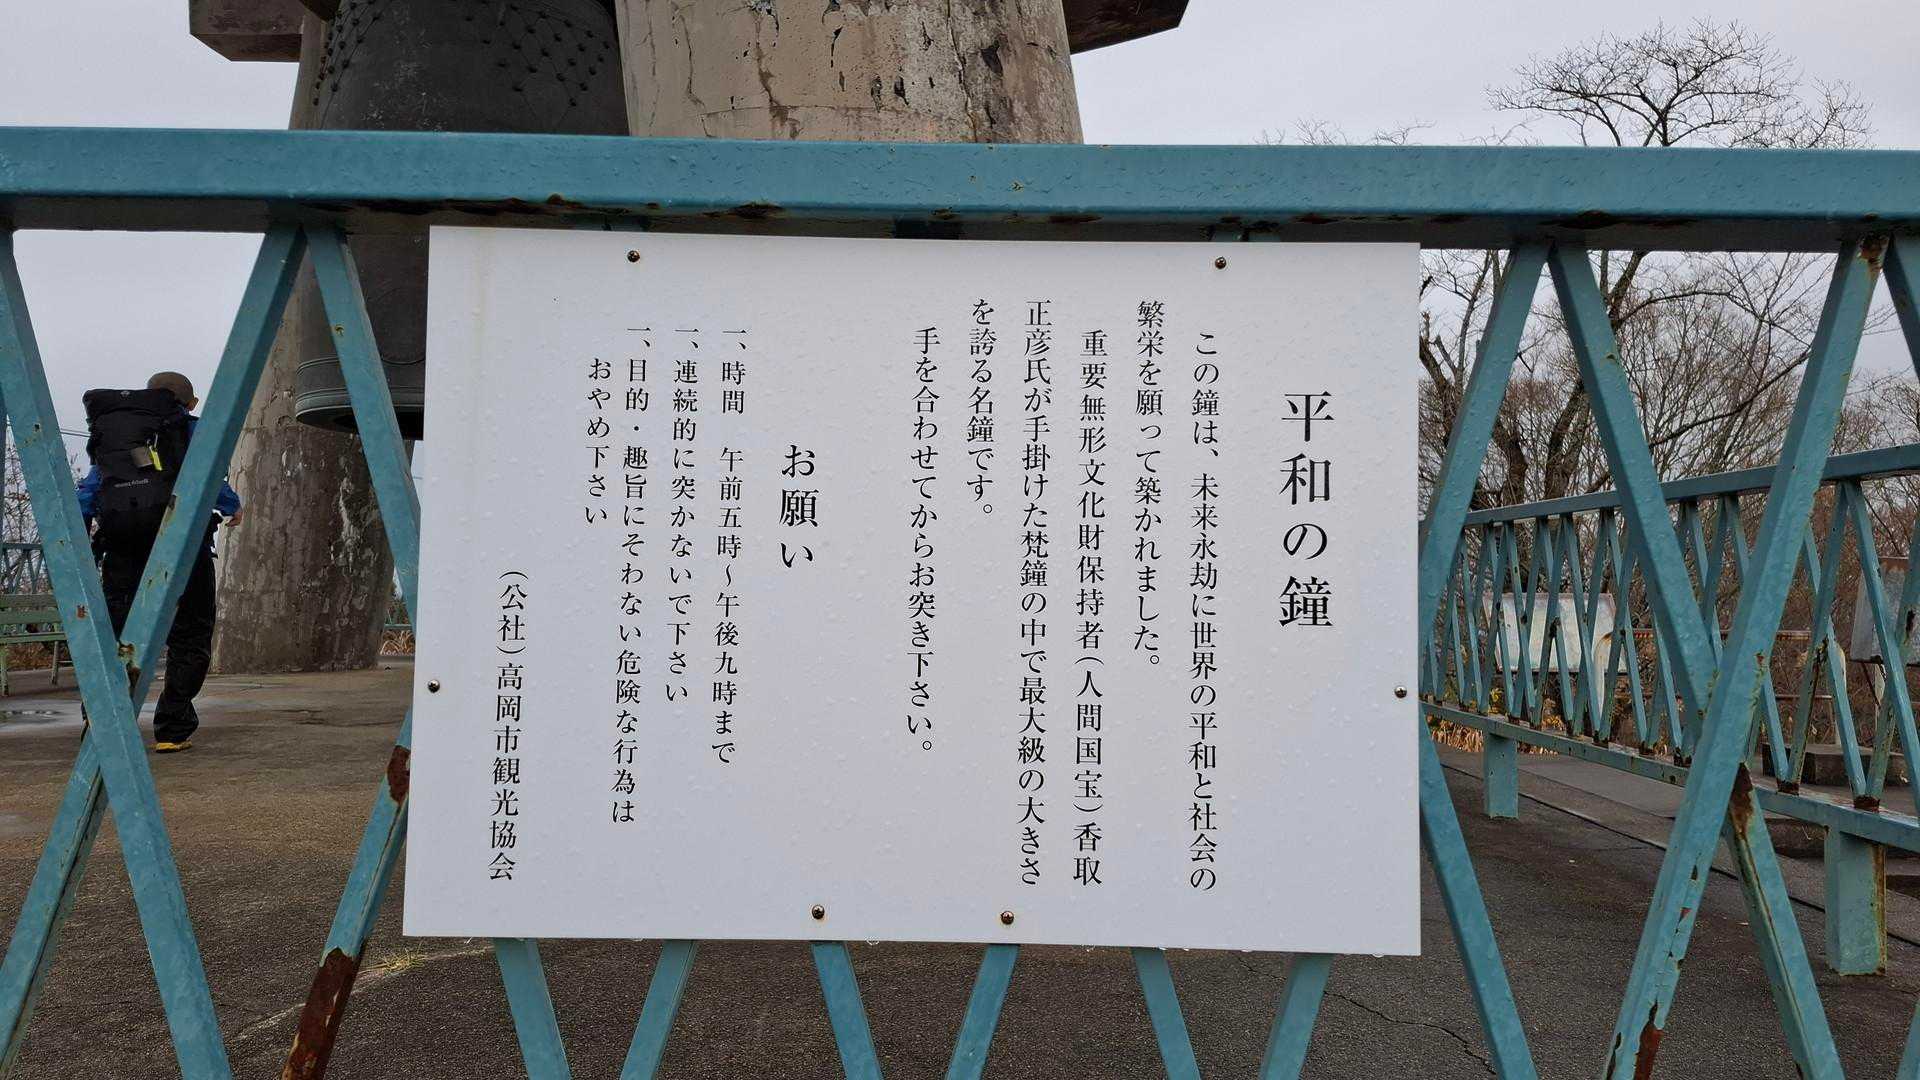 平和の鐘
この鐘は、未来永劫に世界の平和と社会の
繁栄を願って築かれました。
重要無形文化財保持者(人間国宝)香取
正彦氏が手掛けた梵鐘の中で最大級の大きさ
を誇る名鐘です。
手を合わせてからお突き下さい。
お願い
一、時間 午前五時～午後九時まで
一、連続的に突かないで下さい
一、目的・趣旨にそわない危険な行為は
おやめ下さい
(公社)高岡市観光協会